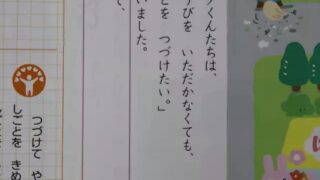 くんたちは、
うびを いただかなくても、
とを つづけたい。」
いました。
て、
つづけて や
しごとを きめ